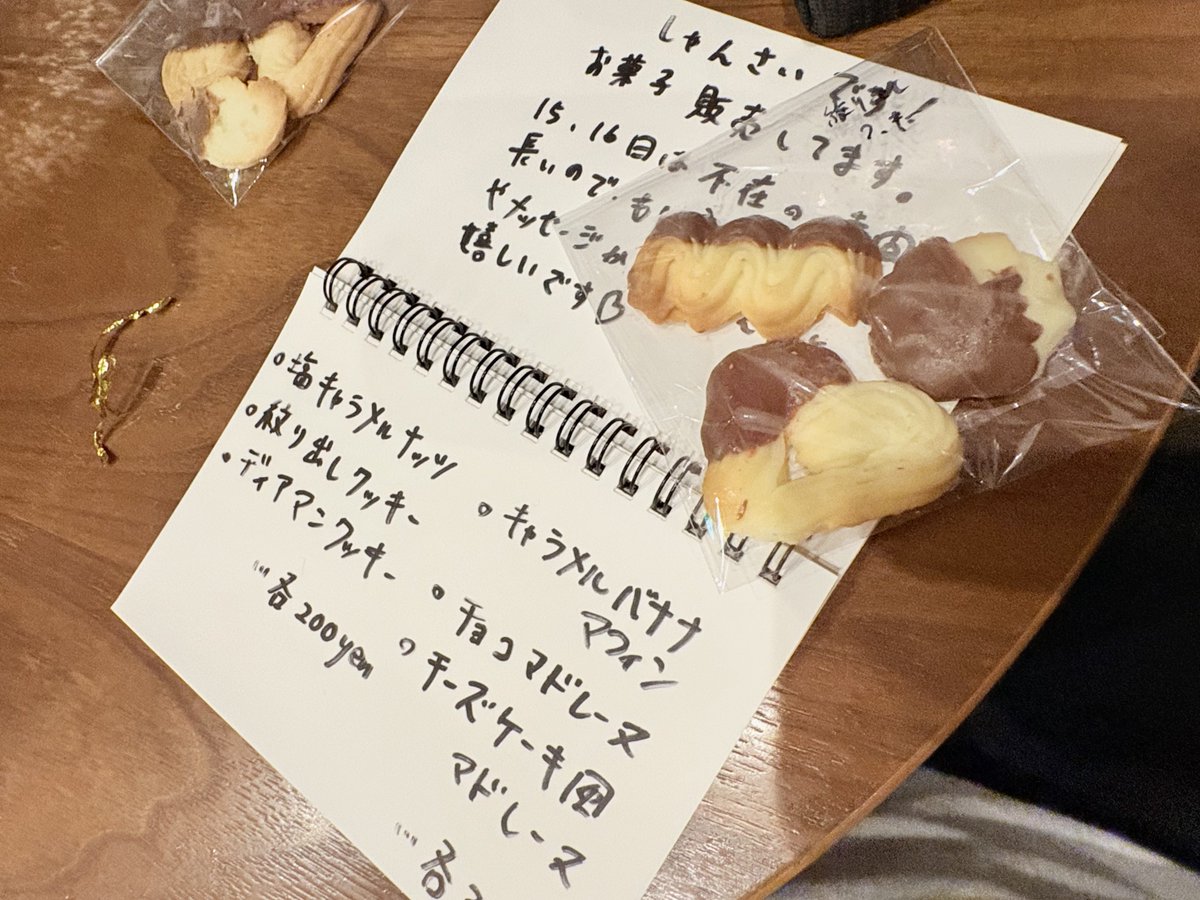 しゃんさい
お菓子 販売してます。
15、16日は 不在の
長いので、
やメッセージが
嬉しいです
・塩キャラメルナッツ
・絞り出しクッキー
・ディアマンクッキー
各200yen
・キャラメルバナナ
マフィン
・チョコマドレーヌ
・チーズケーキ風
マドレーヌ
各